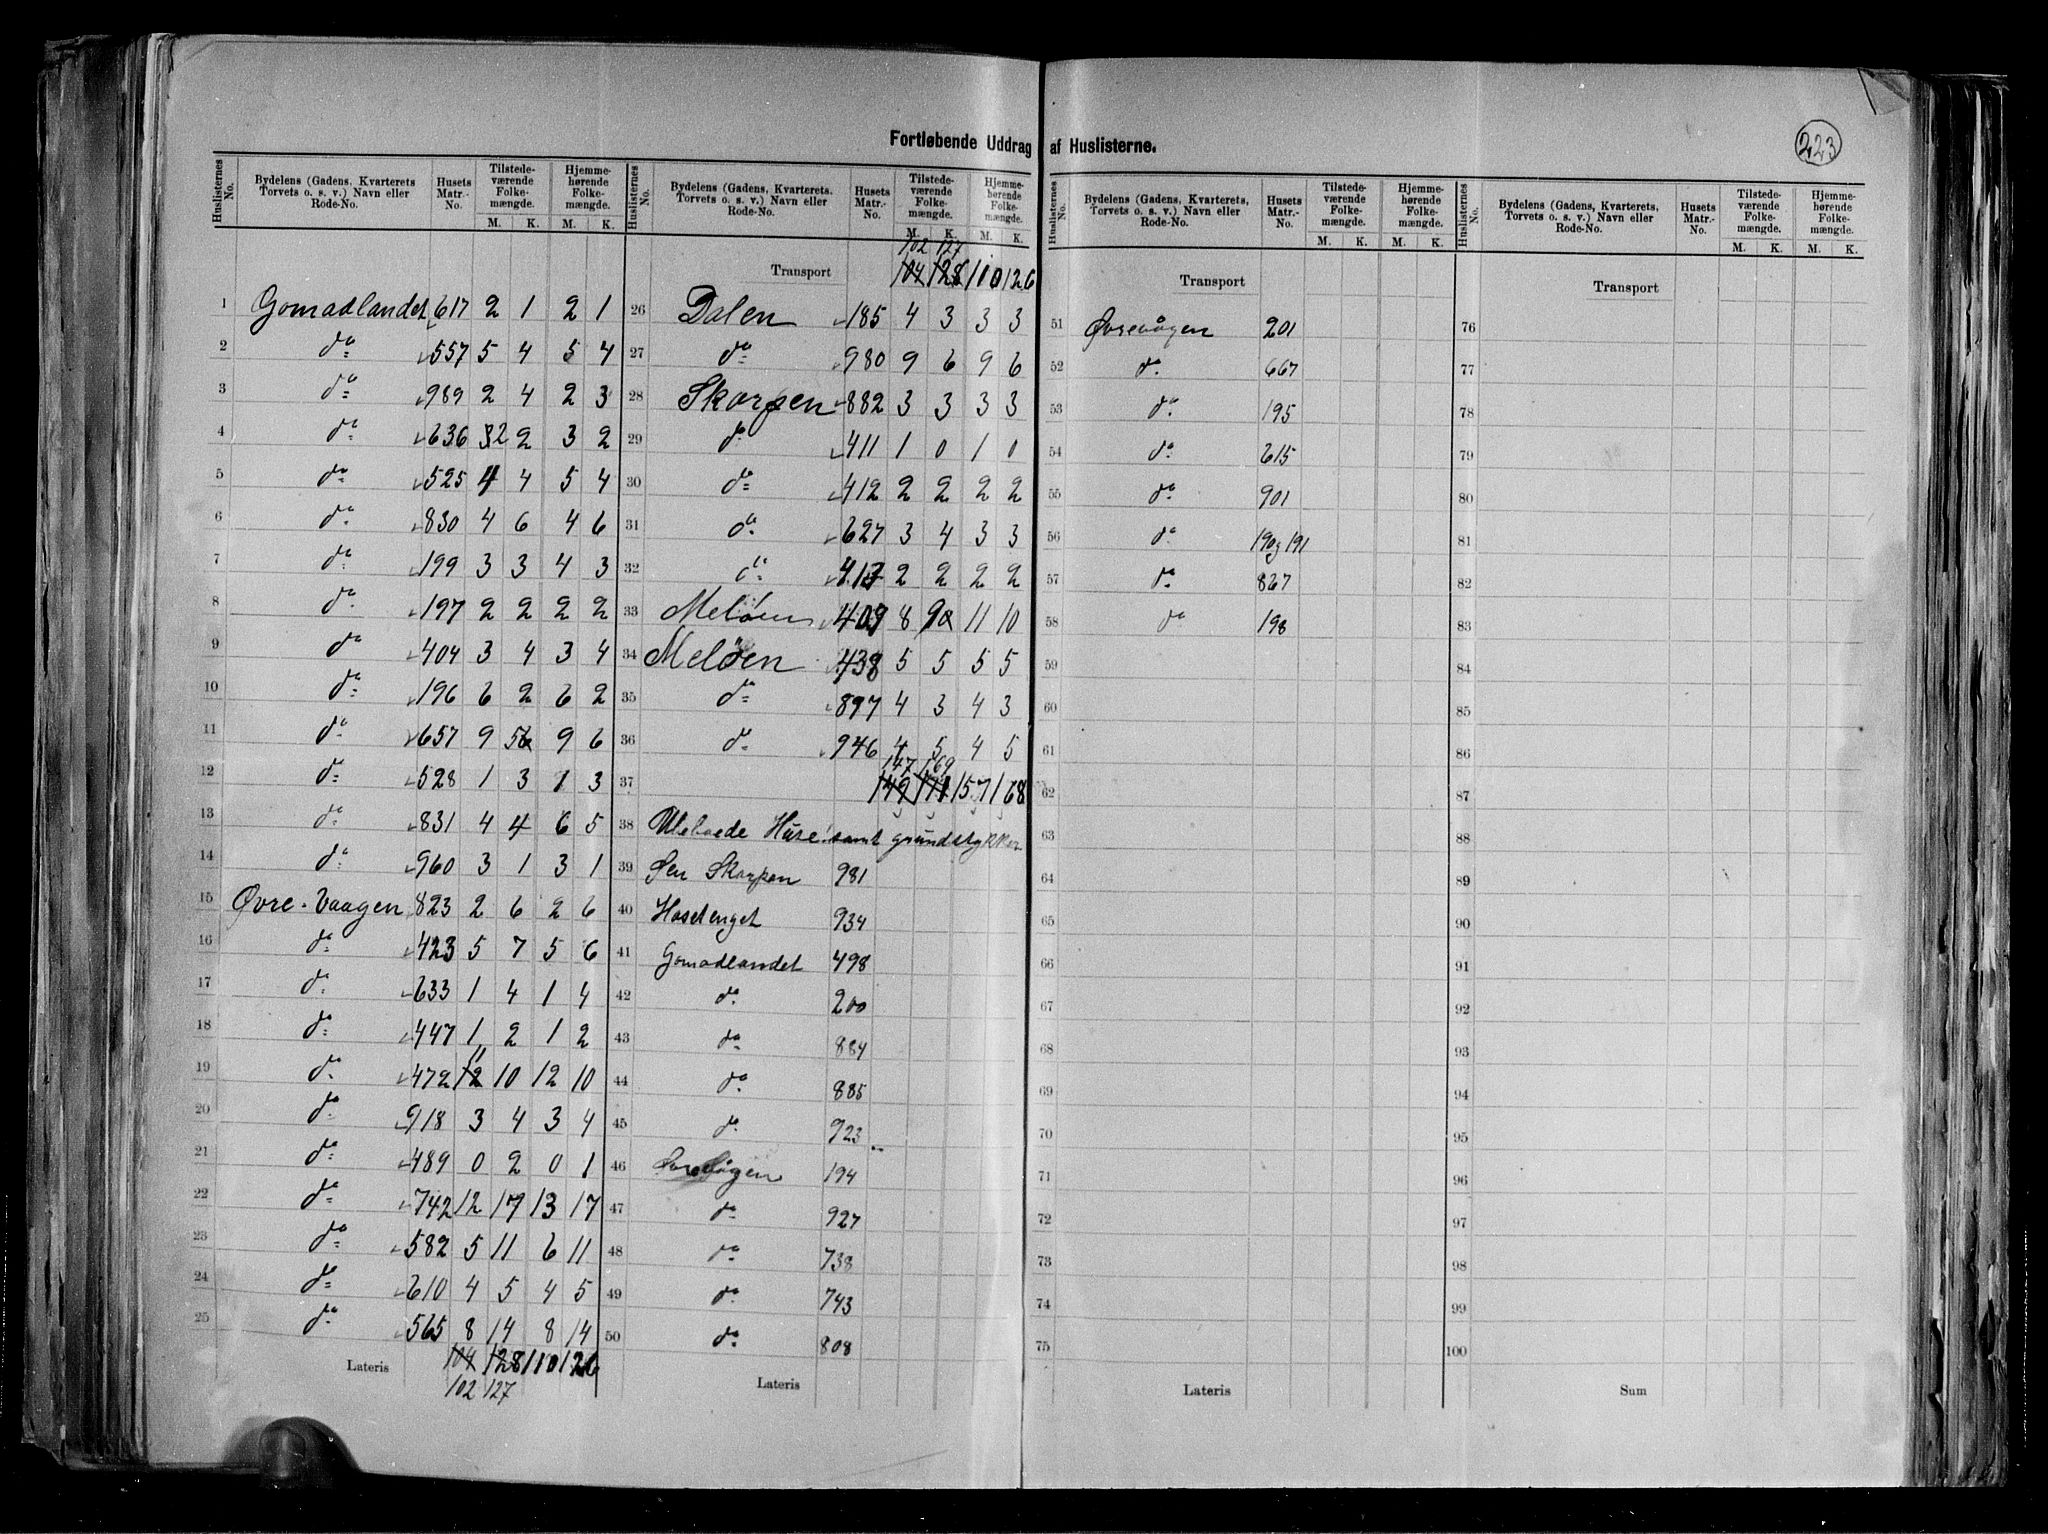 Fortløbende Uddrag af Huslisterne.
223
Huslisternes No. | Bydelens (Gadens, Kvarterets Torvets o. s. v.) Navn eller Rode-No. | Husets Matr.-No. | Tilstedeværende Folkemængde. M. K. | Hjemmehørende Folkemængde. M. K.
1 Gomadlandet 617 2 1 2 1
2 do 557 5 4 5 4
3 do 989 2 4 2 3
4 do 636 32 2 3 2
5 do 525 4 4 5 4
6 do 830 4 6 4 6
7 do 199 3 3 4 3
8 do 197 2 2 2 2
9 do 404 3 4 3 4
10 do 196 6 2 6 2
11 do 657 9 56 9 6
12 do 528 1 3 1 3
13 do 831 4 4 6 5
14 do 960 3 1 3 1
15 Øvre-Vaagen 823 2 6 2 6
16 do 423 5 7 5 6
17 do 633 1 4 1 4
18 do 447 1 2 1 2
19 do 472 12 11 10 12 10
20 do 918 3 4 3 4
21 do 489 0 2 0 1
22 do 742 12 17 13 17
23 do 582 5 11 6 11
24 do 610 4 5 4 5
25 do 565 8 14 8 14
Lateris 104 128 110 126
102 127
Huslisternes No. | Bydelens (Gadens, Kvarterets. Torvets o. s. v.) Navn eller Rode-No. | Husets Matr.-No. | Tilstedeværende Folkemængde. M. K. | Hjemmehørende Folkemængde. M. K.
102 127
Transport 104 128 110 126
26 Dalen 185 4 3 3 3
27 do 980 9 6 9 6
28 Skorpen 882 3 3 3 3
29 do 411 1 0 1 0
30 do 412 2 2 2 2
31 do 627 3 4 3 3
32 do 413 2 2 2 2
33 Meløen 409 8 9 11 10
34 Meløen 438 5 5 5 5
35 do 897 4 3 4 3
36 do 946 4 5 4 5
147 169
37 149 171 157 168
38 Ubeboede Huse samt grundstykker
39 Skorpen 981
40 Hasetenget 934
41 Gomadlandet 498
42 do 200
43 do 884
44 do 885
45 do 923
46 194
47 do 927
48 do 738
49 do 743
50 do 808
Lateris
Huslisternes No. | Bydelens (Gadens, Kvarterets, Torvets o. s. v.) Navn eller Rode-No. | Husets Matr.-No. | Tilstedeværende Folkemængde. M. K. | Hjemmehørende Folkemængde. M. K.
Transport
51 Øvrevågen 201
52 do 667
53 do 195
54 do 615
55 do 901
56 do 190 og 191
57 do 867
58 do 198
59
60
61
62
63
64
65
66
67
68
69
70
71
72
73
74
75
Lateris
Huslisternes No. | Bydelens (Gadens, Kvarterets, Torvets o. s. v.) Navn eller Rode-No. | Husets Matr.-No. | Tilstedeværende Folkemængde. M. K. | Hjemmehørende Folkemængde. M. K.
Transport
76
77
78
79
80
81
82
83
84
85
86
87
88
89
90
91
92
93
94
95
96
97
98
99
100
Sum